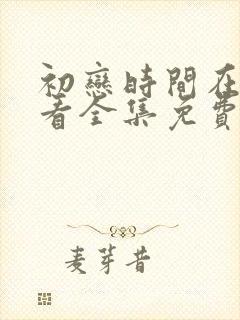 初戀時間在
看全集免費
麦芽昔